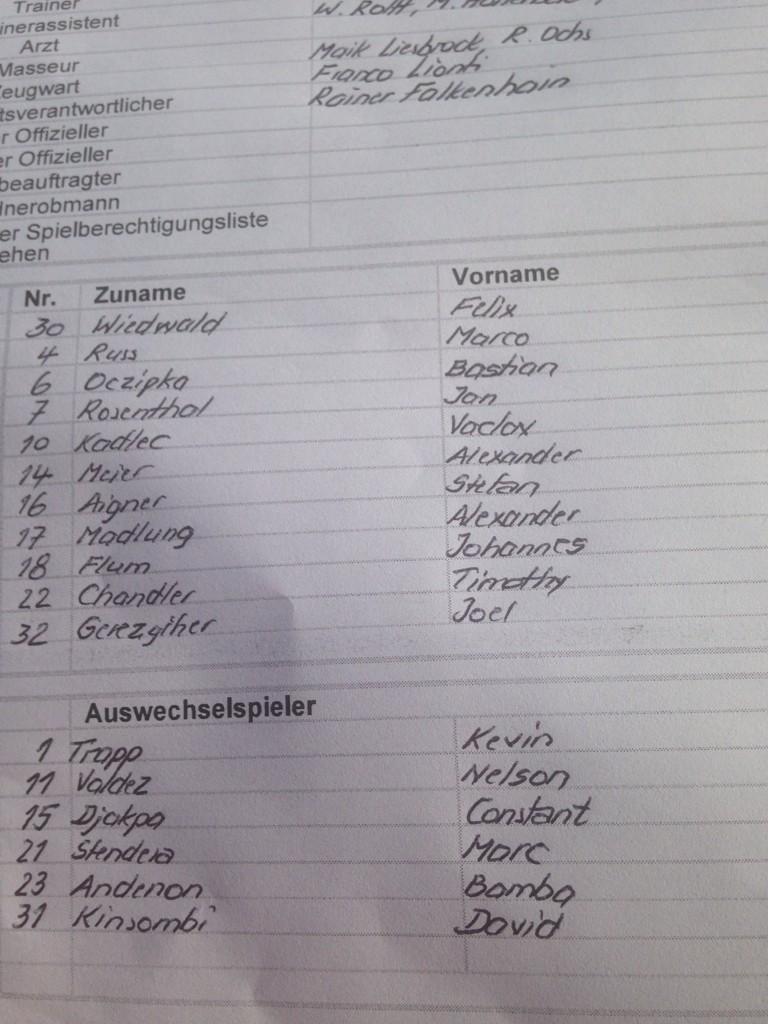 Trainer W. Rolff, M.
inerassistent
Arzt Maik Liesbrock, R. Ochs
Masseur Franco Lionti
eugwart Rainer Falkenhain
tsverantwortlicher
r Offizieller
er Offizieller
beauftragter
lnerobmann
er Spielberechtigungsliste
ehen
Nr. Zuname Vorname
30 Wiedwald Felix
4 Russ Marco
6 Oczipka Bastian
7 Rosenthal Jan
10 Kadlec Vaclax
14 Meier Alexander
16 Aigner Stefan
17 Madlung Alexander
18 Flum Johannes
22 Chandler Timothy
32 Gerezgiher Joel
Auswechselspieler
1 Trapp Kevin
11 Valdez Nelson
15 Djakpa Constant
21 Stendera Marc
23 Anderson Bamba
31 Kinsombi David